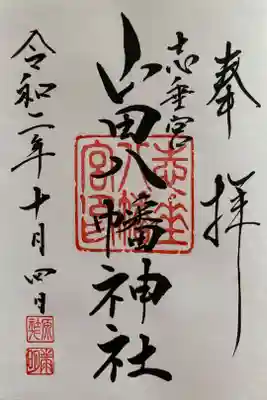 奉拝
志垂宮
山田八幡神社
令和二年十月四日